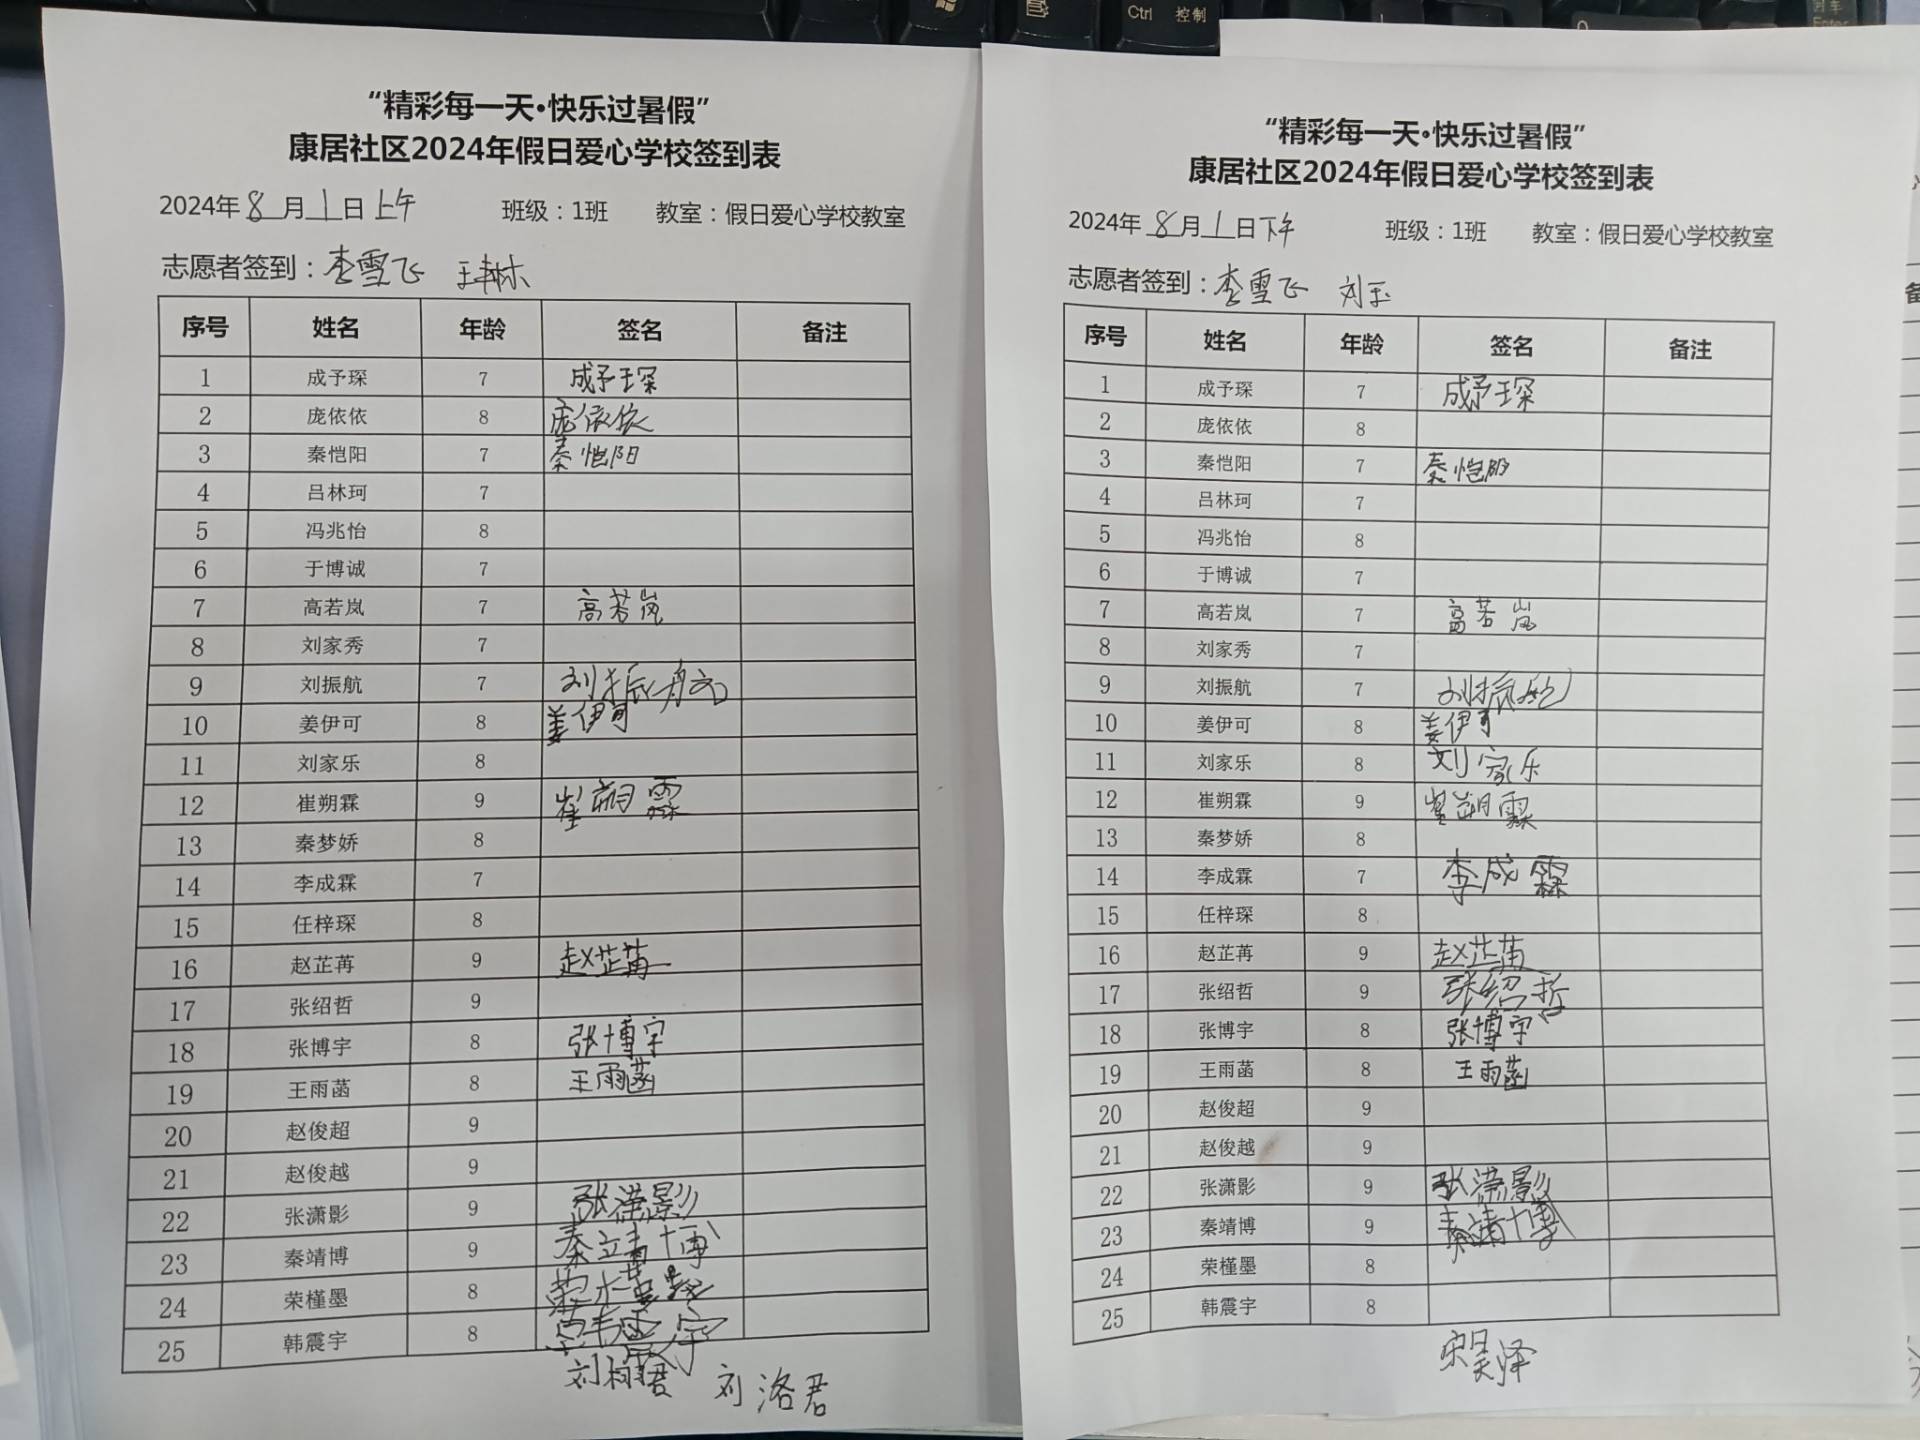 Ctrl 控制
Enter
“精彩每一天·快乐过暑假”
康居社区2024年假日爱心学校签到表
2024年 8 月 1 日 上午 班级：1班 教室：假日爱心学校教室
志愿者签到：李雪飞
序号 姓名 年龄 签名 备注
1 成予琛 7 成予琛
2 庞依依 8 庞依依
3 秦恺阳 7 秦恺阳
4 吕林珂 7
5 冯兆怡 8
6 于博诚 7
7 高若岚 7 高若岚
8 刘家秀 7
9 刘振航 7 刘振航
10 姜伊可 8 姜伊可
11 刘家乐 8
12 崔朔霖 9 崔朔霖
13 秦梦娇 8
14 李成霖 7
15 任梓琛 8
16 赵芷苒 9 赵芷苒
17 张绍哲 9
18 张博宇 8 张博宇
19 王雨菡 8 王雨菡
20 赵俊超 9
21 赵俊越 9
22 张潇影 9 张潇影
23 秦靖博 9 秦靖博
24 荣槿墨 8 荣槿墨
25 韩震宇 8 韩震宇
刘洛君
“精彩每一天·快乐过暑假”
康居社区2024年假日爱心学校签到表
2024年 8 月 1 日 下午 班级：1班 教室：假日爱心学校教室
志愿者签到：李雪飞 刘玉
序号 姓名 年龄 签名 备注
1 成予琛 7 成予琛
2 庞依依 8
3 秦恺阳 7 秦恺阳
4 吕林珂 7
5 冯兆怡 8
6 于博诚 7
7 高若岚 7 高若岚
8 刘家秀 7
9 刘振航 7 刘振航
10 姜伊可 8 姜伊可
11 刘家乐 8 刘家乐
12 崔朔霖 9 崔朔霖
13 秦梦娇 8
14 李成霖 7 李成霖
15 任梓琛 8
16 赵芷苒 9 赵芷苒
17 张绍哲 9 张绍哲
18 张博宇 8 张博宇
19 王雨菡 8 王雨菡
20 赵俊超 9
21 赵俊越 9
22 张潇影 9 张潇影
23 秦靖博 9 秦靖博
24 荣槿墨 8
25 韩震宇 8
宋昊泽